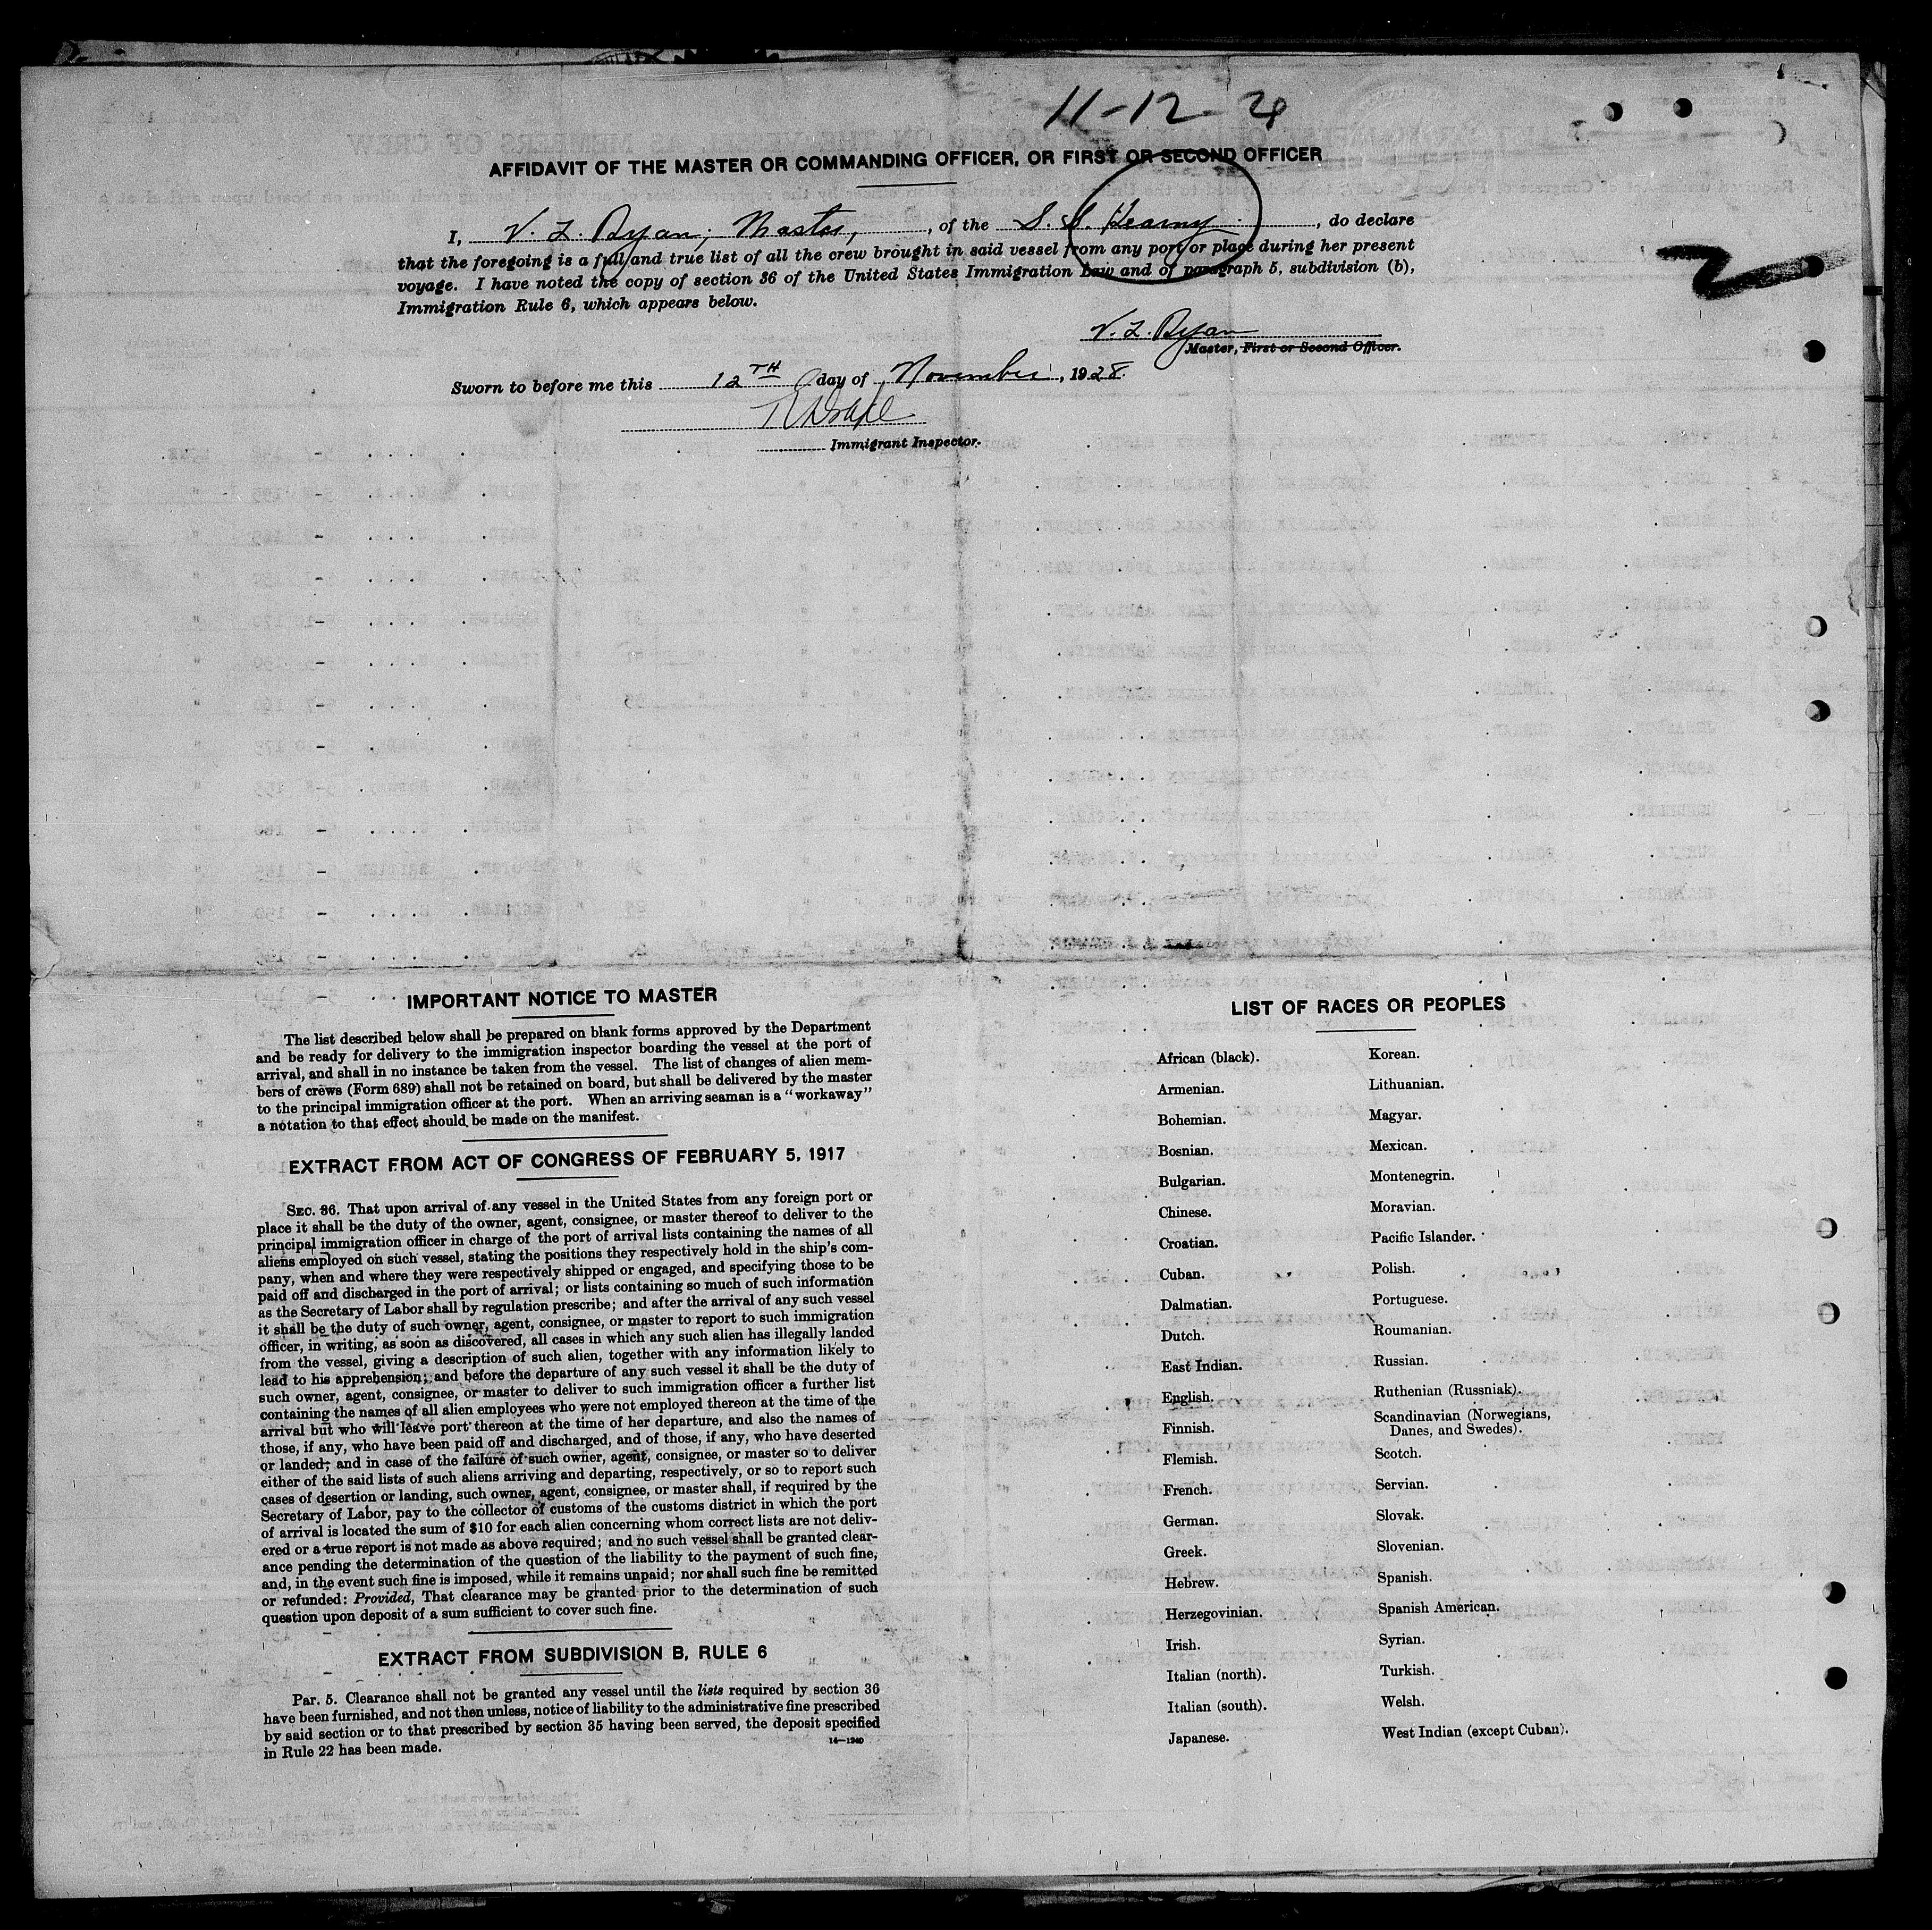 11-12-28
AFFIDAVIT OF THE MASTER OR COMMANDING OFFICER, OR FIRST OR SECOND OFFICER
I, V. L. Ryan, Master, of the S. S. Kearny, do declare
that the foregoing is a full and true list of all the crew brought in said vessel from any port or place during her present
voyage. I have noted the copy of section 36 of the United States Immigration Law and of paragraph 5, subdivision (b),
Immigration Rule 6, which appears below.
V. L. Ryan
Master, First or Second Officer.
Sworn to before me this 12TH day of November, 1928.
Immigrant Inspector.
IMPORTANT NOTICE TO MASTER
The list described below shall be prepared on blank forms approved by the Department
and be ready for delivery to the immigration inspector boarding the vessel at the port of
arrival, and shall in no instance be taken from the vessel. The list of changes of alien mem-
bers of crews (Form 689) shall not be retained on board, but shall be delivered by the master
to the principal immigration officer at the port. When an arriving seaman is a "workaway"
a notation to that effect should be made on the manifest.
EXTRACT FROM ACT OF CONGRESS OF FEBRUARY 5, 1917
SEC. 36. That upon arrival of any vessel in the United States from any foreign port or
place it shall be the duty of the owner, agent, consignee, or master thereof to deliver to the
principal immigration officer in charge of the port of arrival lists containing the names of all
aliens employed on such vessel, stating the positions they respectively hold in the ship's com-
pany, when and where they were respectively shipped or engaged, and specifying those to be
paid off and discharged in the port of arrival; or lists containing so much of such information
as the Secretary of Labor shall by regulation prescribe; and after the arrival of any such vessel
it shall be the duty of such owner, agent, consignee, or master to report to such immigration
officer, in writing, as soon as discovered, all cases in which any such alien has illegally landed
from the vessel, giving a description of such alien, together with any information likely to
lead to his apprehension; and before the departure of any such vessel it shall be the duty of
such owner, agent, consignee, or master to deliver to such immigration officer a further list
containing the names of all alien employees who were not employed thereon at the time of the
arrival but who will leave port thereon at the time of her departure, and also the names of
those, if any, who have been paid off and discharged, and of those, if any, who have deserted
or landed; and in case of the failure of such owner, agent, consignee, or master so to deliver
either of the said lists of such aliens arriving and departing, respectively, or so to report such
cases of desertion or landing, such owner, agent, consignee, or master shall, if required by the
Secretary of Labor, pay to the collector of customs of the customs district in which the port
of arrival is located the sum of $10 for each alien concerning whom correct lists are not deliv-
ered or a true report is not made as above required; and no such vessel shall be granted clear-
ance pending the determination of the question of the liability to the payment of such fine,
and, in the event such fine is imposed, while it remains unpaid; nor shall such fine be remitted
or refunded: Provided, That clearance may be granted prior to the determination of such
question upon deposit of a sum sufficient to cover such fine.
EXTRACT FROM SUBDIVISION B, RULE 6
Par. 5. Clearance shall not be granted any vessel until the lists required by section 36
have been furnished, and not then unless, notice of liability to the administrative fine prescribed
by said section or to that prescribed by section 35 having been served, the deposit specified
in Rule 22 has been made.
14—1240
LIST OF RACES OR PEOPLES
African (black).
Armenian.
Bohemian.
Bosnian.
Bulgarian.
Chinese.
Croatian.
Cuban.
Dalmatian.
Dutch.
East Indian.
English.
Finnish.
Flemish.
French.
German.
Greek.
Hebrew.
Herzegovinian.
Irish.
Italian (north).
Italian (south).
Japanese.
Korean.
Lithuanian.
Magyar.
Mexican.
Montenegrin.
Moravian.
Pacific Islander.
Polish.
Portuguese.
Roumanian.
Russian.
Ruthenian (Russniak).
Scandinavian (Norwegians,
Danes, and Swedes).
Scotch.
Servian.
Slovak.
Slovenian.
Spanish.
Spanish American.
Syrian.
Turkish.
Welsh.
West Indian (except Cuban).